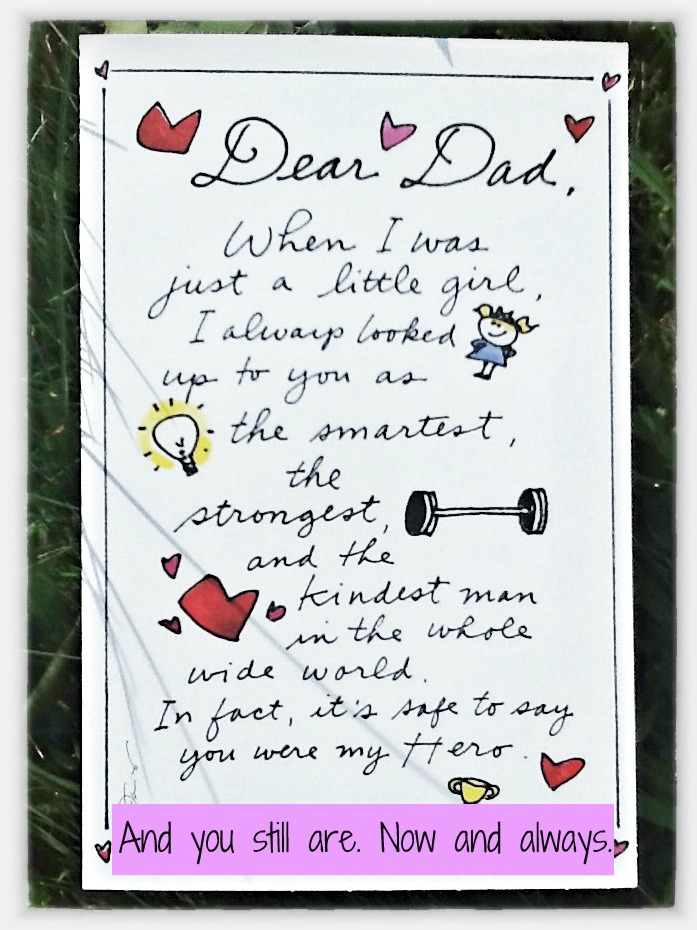 Dear Dad,
When I was
just a little girl,
I always looked
up to you as
the smartest,
the
strongest,
and the
kindest man
in the whole
wide world.
In fact, it's safe to say
you were my Hero.
And you still are. Now and always.